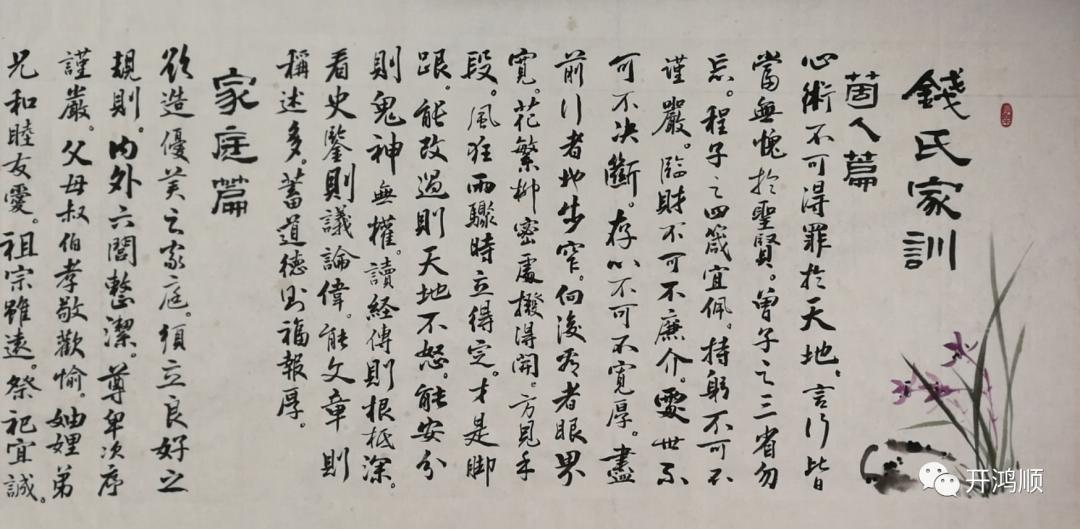 錢氏家訓
箇人篇
心術不可得罪於天地。言行皆
當無愧於聖賢。曾子之三省勿
忘。程子之四箴宜佩。持躬不可不
谨嚴。臨財不可不廉介。處世不
可不决斷。存心不可不寬厚。盡
前行者地步窄。向後看者眼界
寬。花繁柳密處撥得開。方見手
段。風狂雨驟時立得定。才是脚
跟。能改過則天地不怒。能安分
則鬼神無權。讀經傳則根柢深。
看史鑒則議論偉。能文章則
稱述多。蓄道德則福報厚。
家庭篇
欲造優美之家庭。須立良好之
規則。内外六閭整潔。尊卑次序
謹嚴。父母叔伯孝敬歡愉。妯娌弟
兄和睦友愛。祖宗雖遠。祭祀宜誠。
开鸿顺